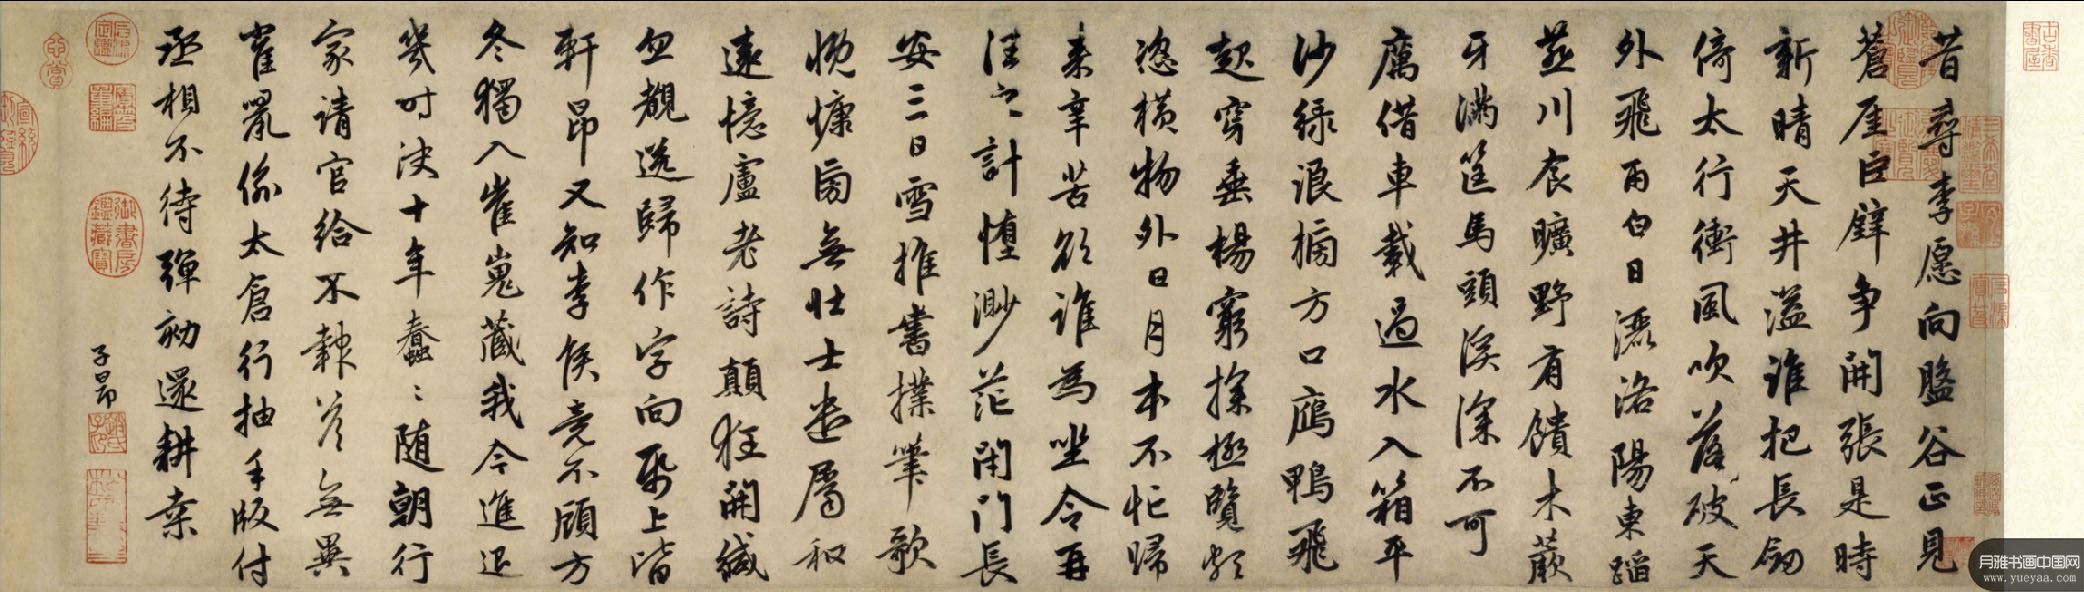 昔尋李愿向盤谷正見
蒼崖巨壁争開張是時
新晴天井溢誰把長劒
倚太行衝風吹落破天
外飛雨白日灑洛陽東蹈
燕川食曠野有饋木蕨
牙滿筐馬頭溪深不可
厲借車載過水入箱平
沙綠浪榜方口鴈鴨飛
起穿垂楊窮探極覽頗
恣橫物外日月本不忙歸
来辛苦欲誰為坐令再
往之計墮渺茫閉門長
安三日雪推書撲筆歌
慨慷旁無壯士遣屬和
遠憶盧老詩顛狂開緘
忽覩送歸作字向紙上皆
軒昂又知李侯竟不顧方
冬獨入崔嵬藏我今進退
幾时决十年蠢〻随朝行
家請官給不報答無異
雀鼠偷太倉行抽手版付
丞相不待彈劾還耕桒
子昂
月雅书画中国网
www.yueyaa.com